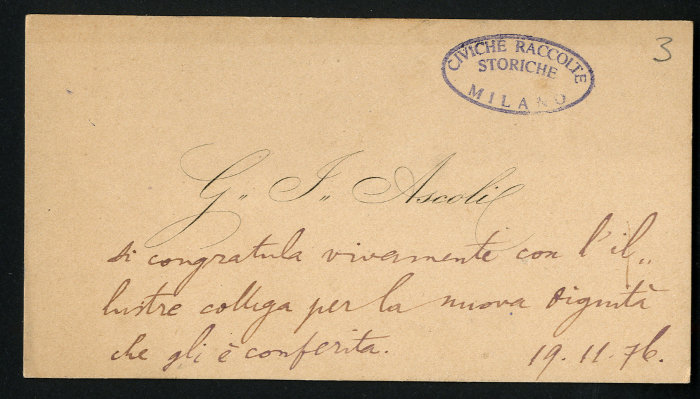 3
CIVICHE RACCOLTE
STORICHE
MILANO
G. I. Ascoli
si congratula vivamente con l'il„
lustre collega per la nuova dignità
che gli è conferita.
19.11.76.